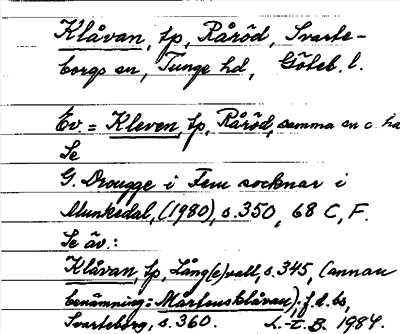 Klåvan, tp, Råröd, Svarte-
borgs sn, Tunge hd, Göteb. l.
Ev. = Kleven, tp, Råröd, samma sn o. hd
Se
G. Drougge i Fem socknar i
Munkedal, (1980), s. 350, 68 C, F.
Se äv.:
Klåvan, tp, Lång(e)vall, s. 345, (annan
benämning: Mårtensklåvan), f.d. bs,
Svarteborg, s. 360. L.-E. B. 1984.